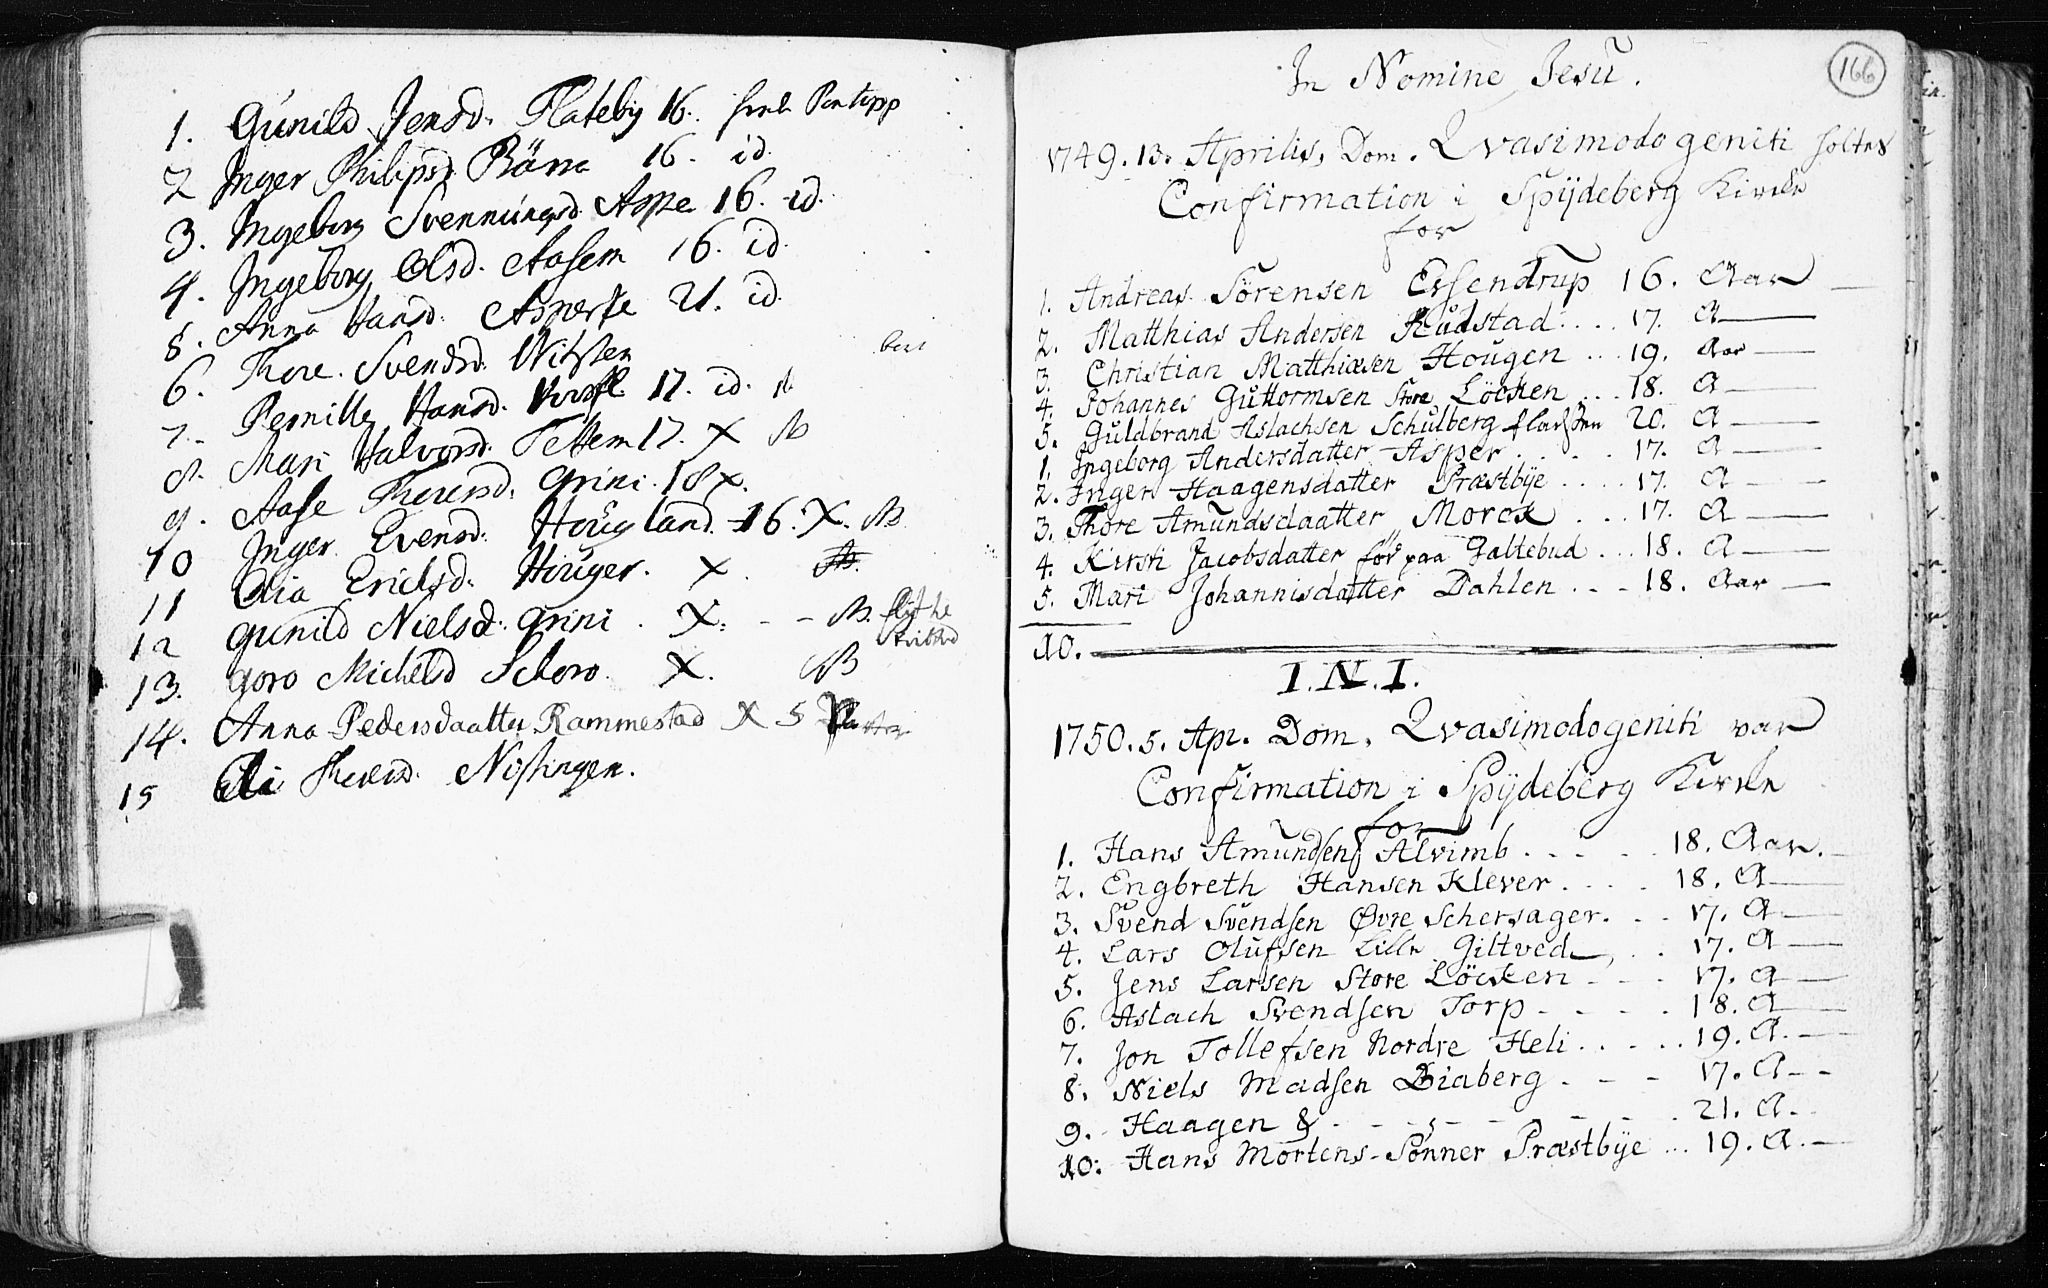 1. Gunild Jensd. Flateby 16.
2 Inger Philipsd. 16. id.
3. Ingeborg Svennungsd. Aspe 16. id.
4. Ingeborg Olsd. Aasem 16. id
5. Anna Hansd. 21. id.
6. Thore. Svendsd.
7. Pernille Hansd. 17. id.
8. Mari Halvorsd. Tettem 17. X NB
9. Aase Thoresd. Grini. 18 X.
10 Inger Evensd. Hougland. 16. X. NB
11 Olia Ericksd. Houger. X. NB.
12 Gunild Nielsd. Grini. X. - - NB.
13. Goro Michelsd Schoro. X. NB
14. Anna Pedersdaatter Rammestad X 5
15 Eli Thoresd. Nostingen.
166
In Nomine Jesu.
1749. 13. Aprilis, Dom. Qvasimodogeniti holtes
Confirmation i Spÿdeberg Kircke
for
1. Andreas Sörensen Essendrup 16. Aar
2. Matthias Andersen Rudstad.... 17. A
3. Christian Matthiæsen Hougen ... 19. Aar
4. Johannes Guttormsen Store Löcken ... 18. A
5. Guldbrand Aslachsen Schulberg 20. A
1. Ingeborg Andersdatter Asper..... 17. A
2. Inger Haagensdatter Præstbÿe .... 17. A
3. Thore Amundsdaatter Morck ... 17. A
4. Kirsti Jacobsdatter för paa Galtebud ... 18. A
5. Mari Johannisdatter Dahlen - - - 18. Aar
10.
I. N. I.
1750. 5. Apr. Dom. Qvasimodogeniti var
Confirmation i Spÿdeberg Kircke
for
1. Hans Amundsen Alvimb..... 18. Aar.
2. Engbreth Hansen Klever..... 18. A
3. Svend Svendsen Øvre Schersager... 17. A
4. Lars Olufsen Lille Giltved... 17. A
5. Jens Larsen Store Löcken - - - 17. A
6. Aslach Svendsen Torp - - - - 18. A
7. Jon Tollefsen Nordre Heli..... 19. A.
8. Niels Madsen Diaberg - - - 17. A - -
9. Haagen & - - - - - - 21. A.
10. Hans Mortens-Sønner Præstbÿe ... 19. A.